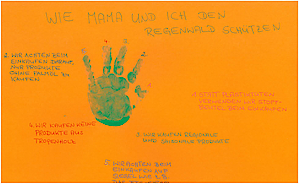 WIE MAMA UND ICH DEN
REGENWALD SCHÜTZEN
2. WIR ACHTEN BEIM
EINKAUFEN DARAUF,
NUR PRODUKTE
OHNE PALMÖL ZU
KAUFEN
1. STATT PLASTIKTÜTEN
VERWENDEN WIR STOFF-
BEUTEL BEIM EINKAUFEN
4. WIR KAUFEN KEINE
PRODUKTE AUS
TROPENHOLZ
3. WIR KAUFEN REGIONALE
UND SAISONALE PRODUKTE
5. WIR ACHTEN BEIM
EINKAUFEN AUF
SIEGEL WIE Z.B.